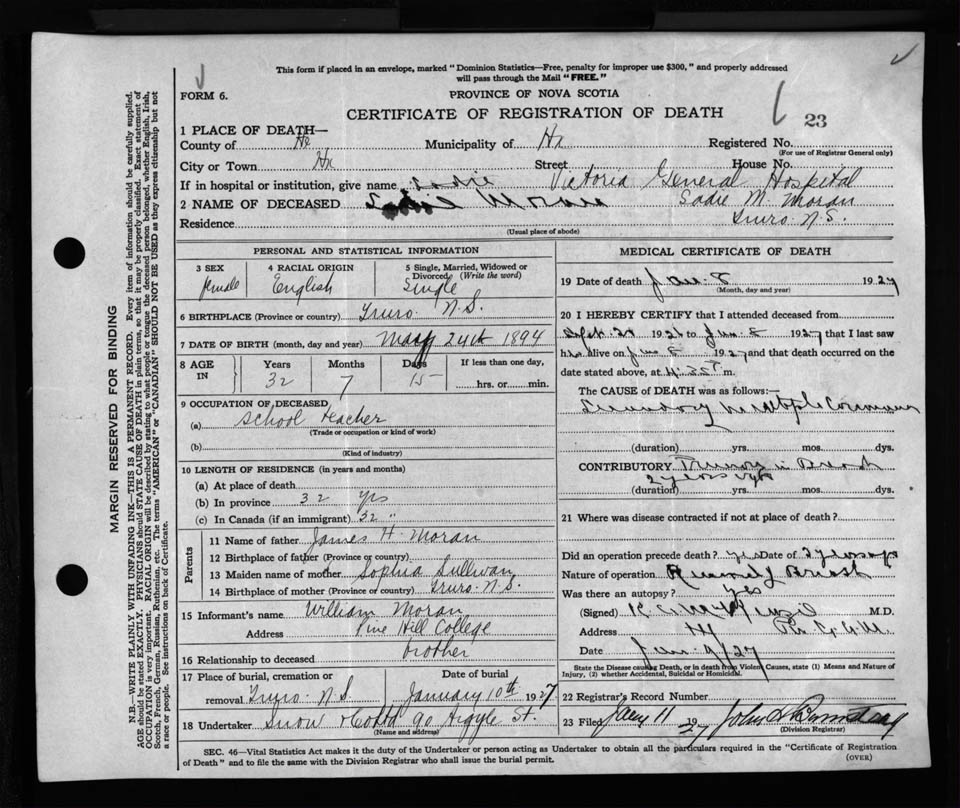 This form if placed in an envelope, marked "Dominion Statistics—Free, penalty for improper use $300," and properly addressed
will pass through the Mail "FREE."
FORM 6.
PROVINCE OF NOVA SCOTIA
CERTIFICATE OF REGISTRATION OF DEATH
23
1 PLACE OF DEATH—
County of Hx Municipality of Hx Registered No.
(For use of Registrar General only)
City or Town Hx Street House No.
If in hospital or institution, give name Victoria General Hospital
2 NAME OF DECEASED Sadie M. Moran
Residence Truro N.S.
(Usual place of abode)
PERSONAL AND STATISTICAL INFORMATION
3 SEX
female
4 RACIAL ORIGIN
English
5 Single, Married, Widowed or
Divorced (Write the word)
Single
6 BIRTHPLACE (Province or country) Truro N.S.
7 DATE OF BIRTH (month, day and year) 24th 1894
8 AGE
IN
Years
32
Months
7
Days
15
If less than one day,
hrs. or min.
9 OCCUPATION OF DECEASED
(a) School teacher
(Trade or occupation or kind of work)
(b)
(Kind of industry)
10 LENGTH OF RESIDENCE (in years and months)
(a) At place of death
(b) In province 32 yrs
(c) In Canada (if an immigrant) 32 "
Parents
11 Name of father James H. Moran
12 Birthplace of father (Province or country)
13 Maiden name of mother Sophia Sullivan
14 Birthplace of mother (Province or country) Truro N.S.
15 Informant's name William Moran
Address Pine Hill College
16 Relationship to deceased brother
17 Place of burial, cremation or
removal Truro N.S.
Date of burial
January 10th 1927
18 Undertaker Snow & Co Ltd 90 Argyle St.
(Name and address)
MEDICAL CERTIFICATE OF DEATH
19 Date of death Jan 8 1927
(Month, day and year)
20 I HEREBY CERTIFY that I attended deceased from
Sept 1926 to Jan 8 1927 that I last saw
her alive on Jan 8 1927 and that death occurred on the
date stated above, at m.
The CAUSE OF DEATH was as follows:—
(duration) yrs. mos. dys.
CONTRIBUTORY
(duration) yrs. mos. dys.
21 Where was disease contracted if not at place of death?
Did an operation precede death? yes Date of 2 years ago
Nature of operation Breast
Was there an autopsy? yes
(Signed) M.D.
Address
Date Jan 9/27
State the Disease causing Death, or in death from Violent Causes, state (1) Means and Nature of
Injury, (2) whether Accidental, Suicidal or Homicidal.
22 Registrar's Record Number
23 Filed Jany 11 1927 John
(Division Registrar)
SEC. 46—Vital Statistics Act makes it the duty of the Undertaker or person acting as Undertaker to obtain all the particulars required in the "Certificate of Registration
of Death" and to file the same with the Division Registrar who shall issue the burial permit.
(OVER)
MARGIN RESERVED FOR BINDING
N.B.—WRITE PLAINLY WITH UNFADING INK—THIS IS A PERMANENT RECORD. Every item of information should be carefully supplied.
AGE should be stated EXACTLY. PHYSICIANS should STATE CAUSE OF DEATH in plain terms, so that it may be properly classified. Exact statement of
OCCUPATION is very important. RACIAL ORIGIN will be described by stating to what people or tongue the deceased person belonged, whether English, Irish,
Scotch, French, German, Russian, Ruthenian, etc. The terms "AMERICAN" or "CANADIAN" SHOULD NOT BE USED as they express citizenship but not
a race or people. See instructions on back of Certificate.